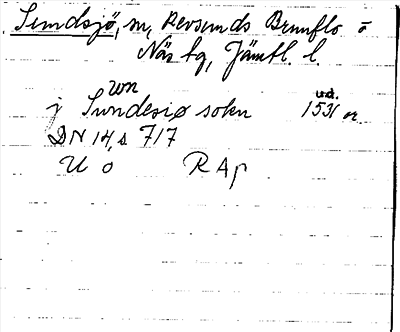 Sundsjö, sn, Revsunds Brunflo o
Näs tg, Jämtl. l.
won ud.
j Sundesiø sokn 1531 or.
DN 14, s 717
U o R Ap